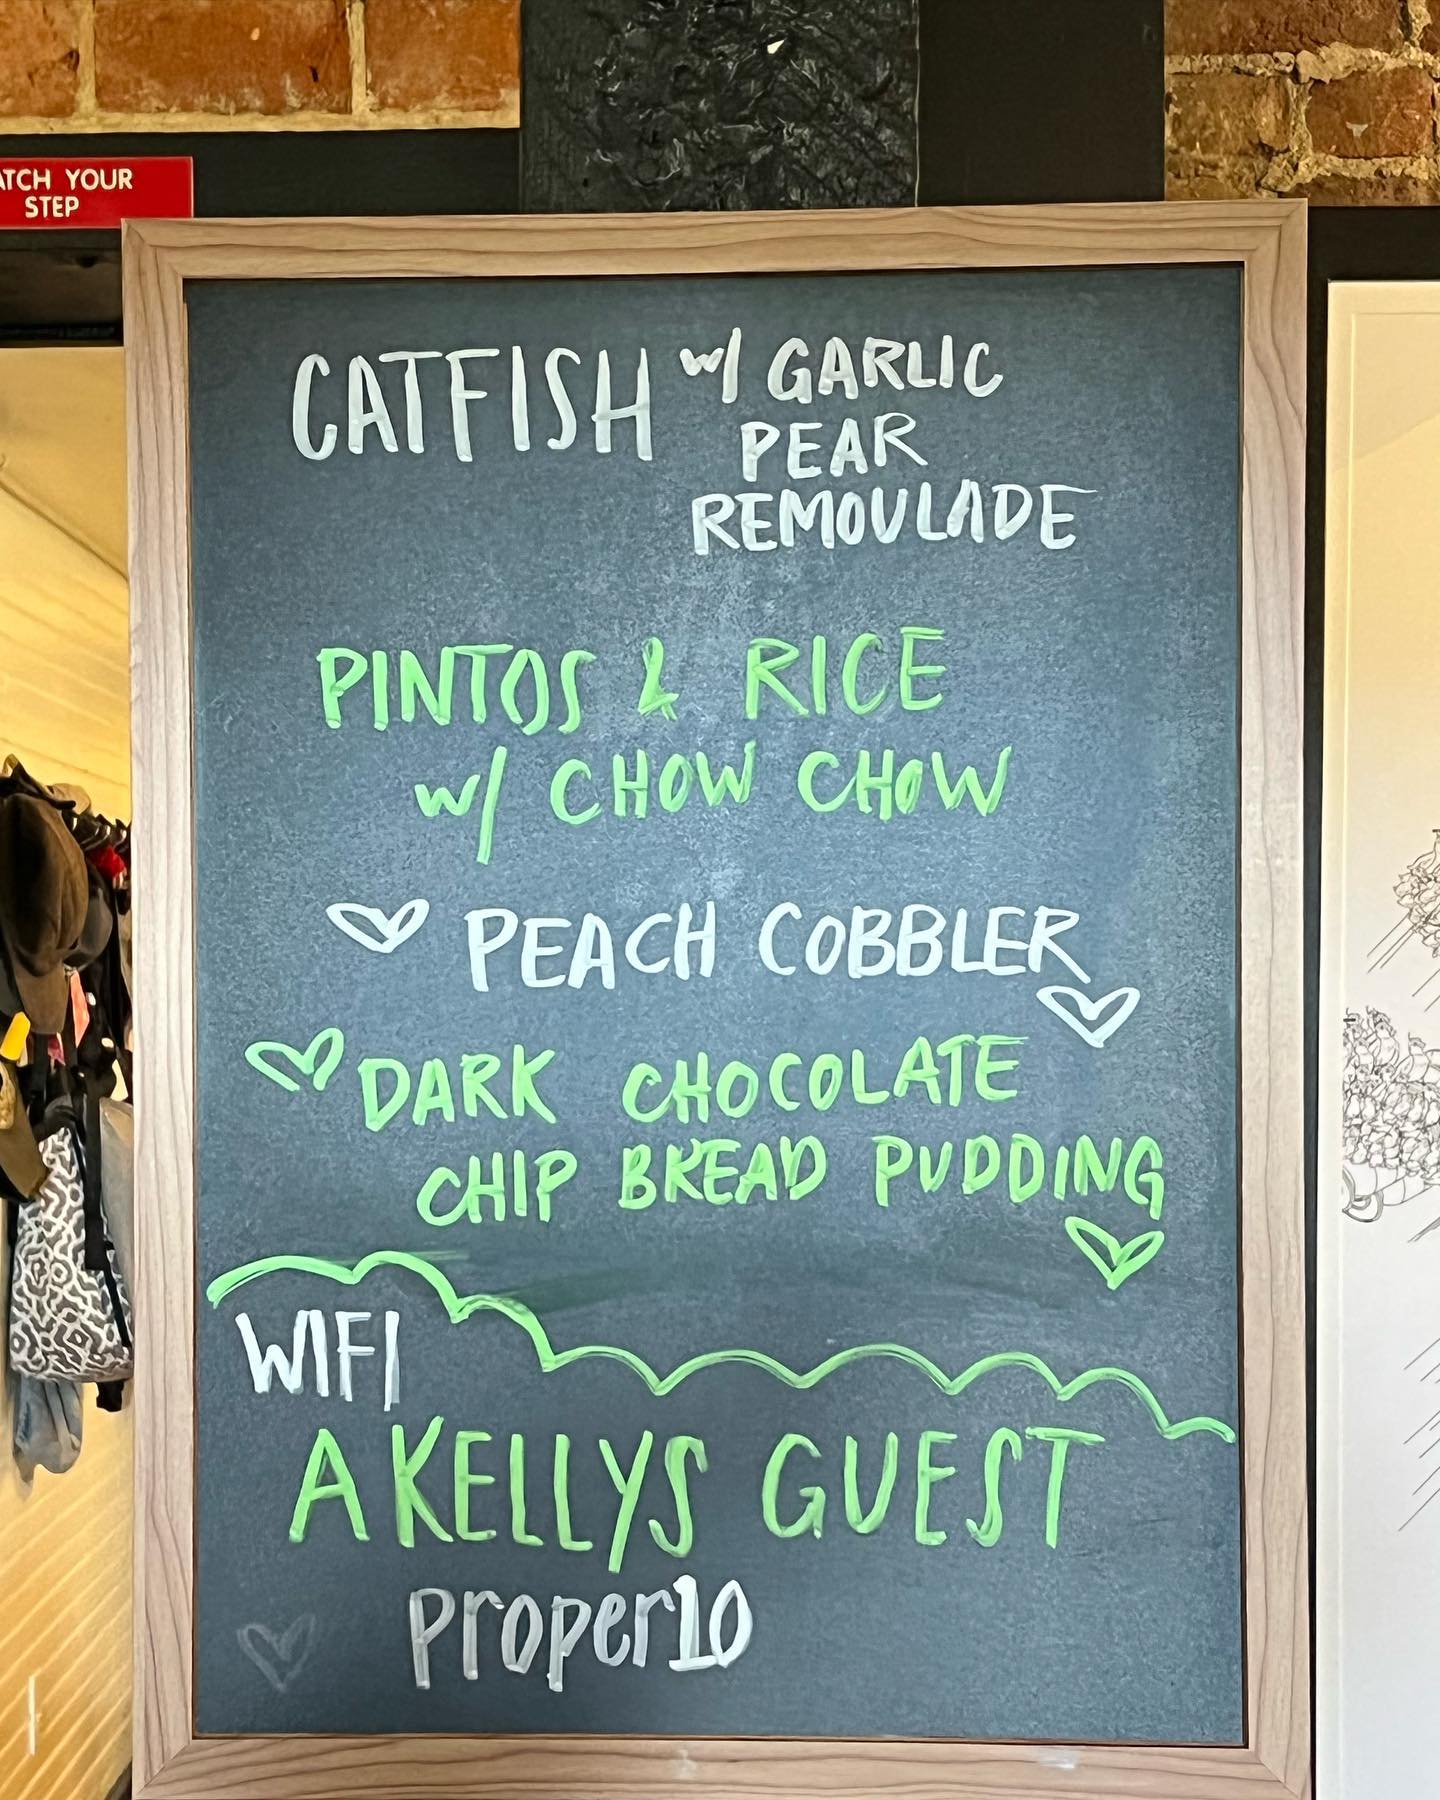 ATCH YOUR
STEP
CATFISH w/ GARLIC
PEAR
REMOULADE
PINTOS & RICE
w/ CHOW CHOW
PEACH COBBLER
DARK CHOCOLATE
CHIP BREAD PUDDING
WIFI
A KELLYS GUEST
proper10